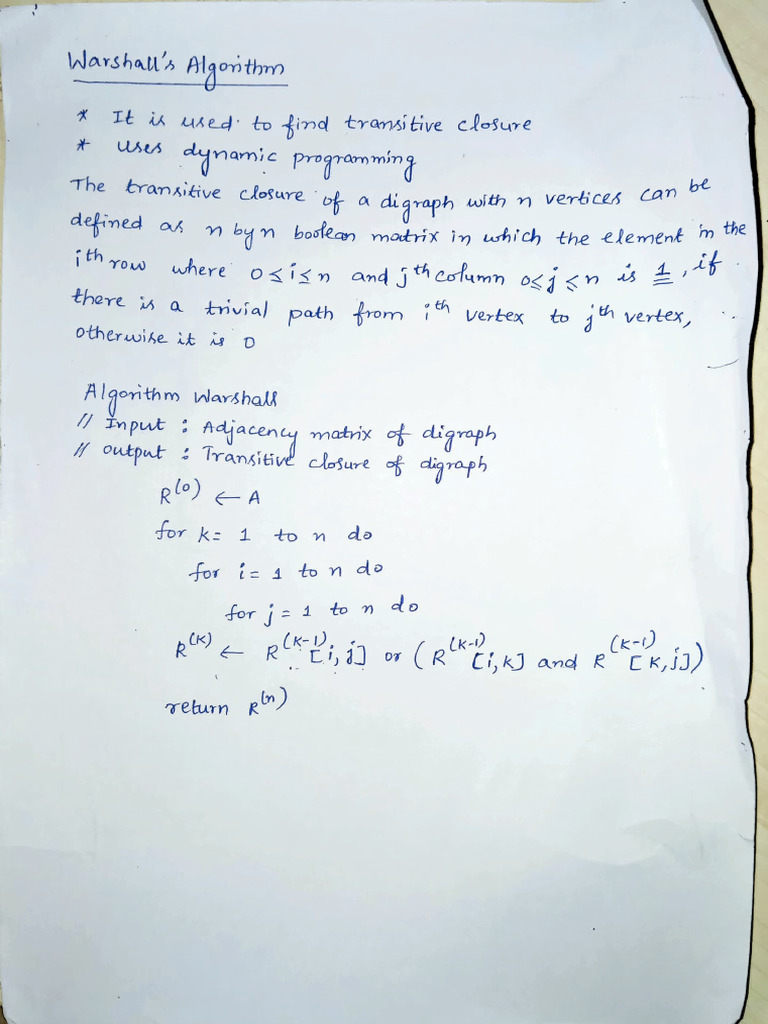 Warshall's Algorithm
* It is used to find transitive closure
* uses dynamic programming
The transitive closure of a digraph with n vertices can be
defined as n by n boolean matrix in which the element in the
ith row where 0≤i≤n and jth column 0≤j≤n is 1, if
there is a trivial path from ith vertex to jth vertex,
otherwise it is 0
Algorithm Warshall
// Input : Adjacency matrix of digraph
// output : Transitive closure of digraph
R^(0) ← A
for k= 1 to n do
for i= 1 to n do
for j = 1 to n do
R^(K) ← R^(K-1)[i,j] or (R^(K-1)[i,k] and R^(K-1)[K,j])
return R^(n)